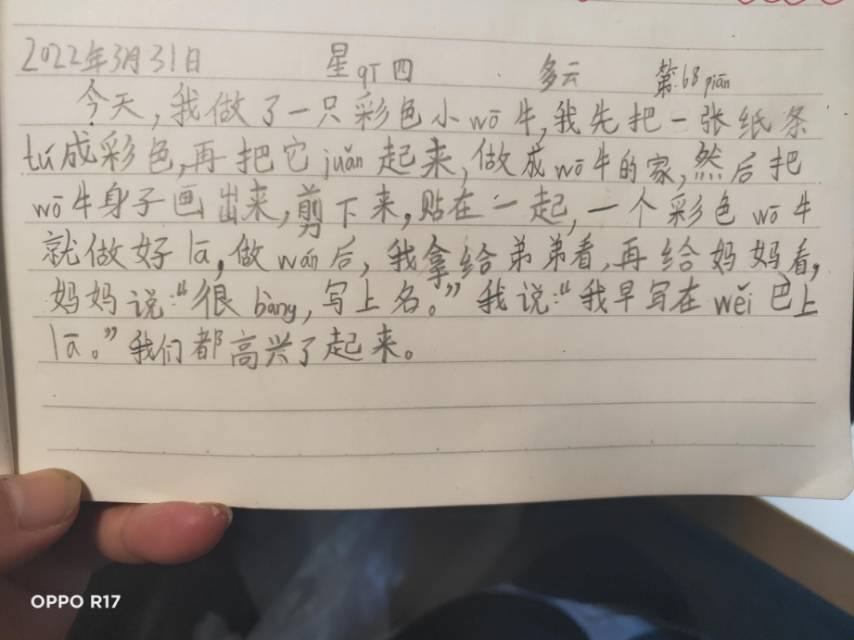 2022年3月31日 星qī四 多云 第68piān
今天,我做了一只彩色小wō牛,我先把一张纸条
tú成彩色,再把它juǎn起来,做成wō牛的家,然后把
wō牛身子画出来,剪下来,贴在一起,一个彩色wō牛
就做好lā,做wán后,我拿给弟弟看,再给妈妈看,
妈妈说:“很bàng,写上名。”我说:“我早写在wěi巴上
lā。”我们都高兴了起来。
OPPO R17